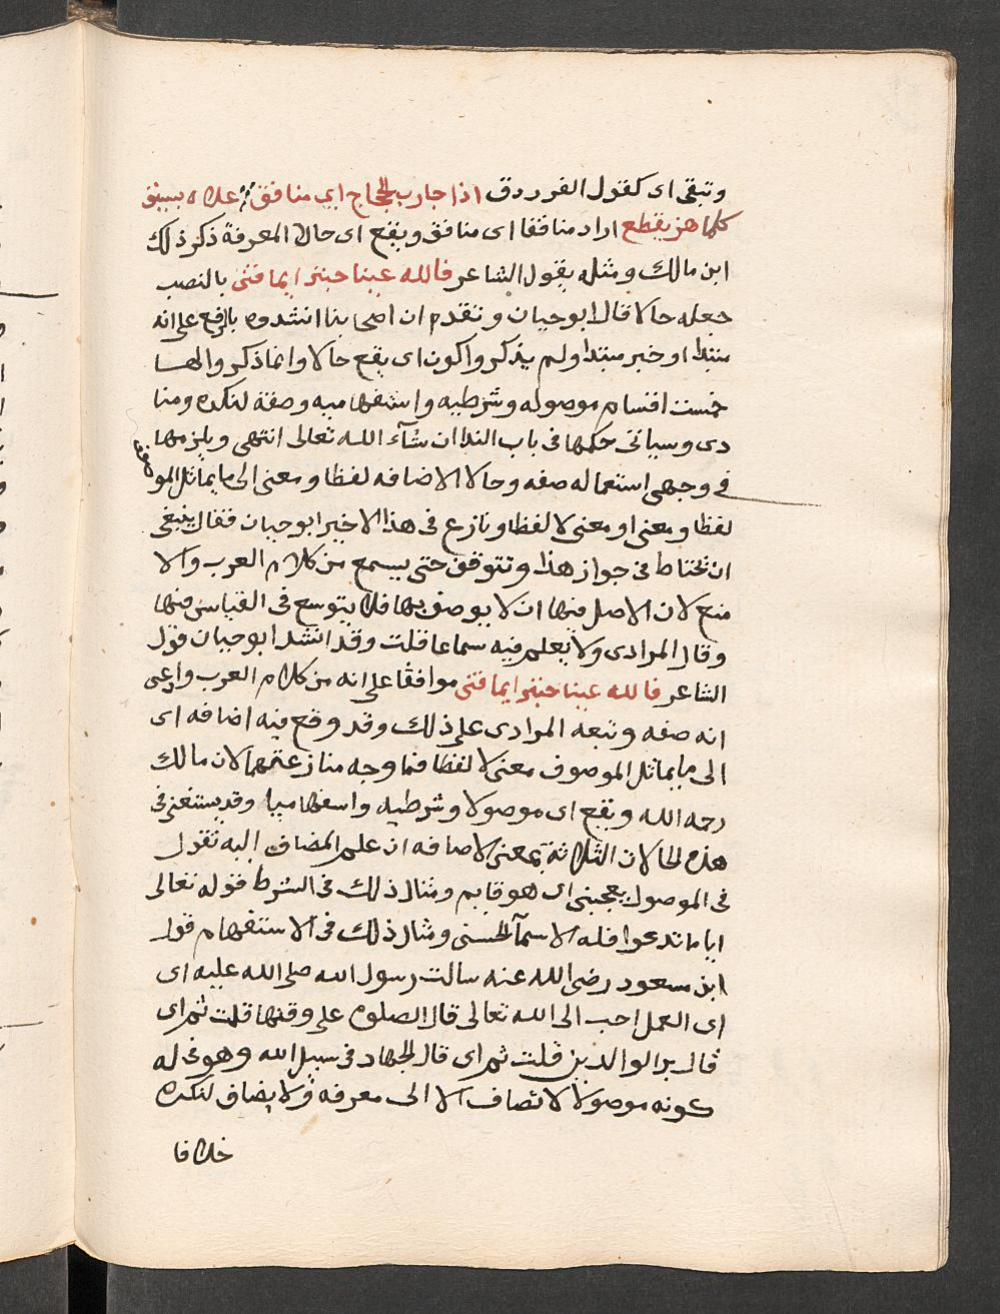 وتبقى اى كقول الفرردق اذا جارب الحجاج اي منافق علاه بسيف
كلما هز يقطع اراد منافقا اى منافق ويقع اى حال المعرفة ذكر ذلك
ابن مالك ومثله بقول الشاعر فالله عينا حبتر ايما فتى بالنصب
جعله حالا قال ابو حيان وتقدم ان اصحابنا انشدوه بالرفع على انه
مبتدا او خبر مبتدا ولم يذكروا كون اى يقع حالا وانما ذكروا لها
خمست اقسام موصوله وشرطيه واستفهاميه وصفة لنكره ومنا
دى وسياتى حكمها فى باب الندا ان شآء الله تعالى انتهى ويلزمها
فى وجهى استعماله صفه وحالا الاضافه لفظا ومعنى الى ما يماثل الموصوف
لفظا ومعنى او معنى لا لفظا ونازع فى هذا الاخير ابو حيان فقال ينبغى
ان تحتاط فى جواز هذا وتتوقف حتى يسمع من كلام العرب والا
منع لان الاصل فيها ان لا يوصف بها فلا يتوسع فى القياس فيها
وقال المرادى ولا يعلم فيه سماعا قلت وقد انشد ابو حيان قول
الشاعر فالله عينا حبتر ايما فتى موافقا على انه من كلام العرب وادعى
انه صفه وتبعه المرادى على ذلك وقد وقع فيه اضافه اى
الى ما يماثل الموصوف معنى لا لفظا فما وجه منازعتهما لابن مالك
رحمه الله ويقع اى موصولا وشرطيه واستفهاميا وقد يستغنى فى
هذه الحالات الثلاثة بمعنى الاضافه ان علم المضاف اليه تقول
فى الموصول يعجبنى اى هو قايم ومثال ذلك فى الشرط قوله تعالى
ايا ما تدعوا فله الاسمآ الحسنى ومثال ذلك فى الاستفهام قول
ابن مسعود رضى الله عنه سالت رسول الله صلى الله عليه اى
اى العمل احب الى الله تعالى قال الصلوه على وقتها قلت ثم اى
قال بر الوالدين قلت ثم اى قال الجهاد فى سبيل الله وهو فى له
كونه موصولا لا تضاف الا الى معرفه ولا يضاف لنكره
خلافا